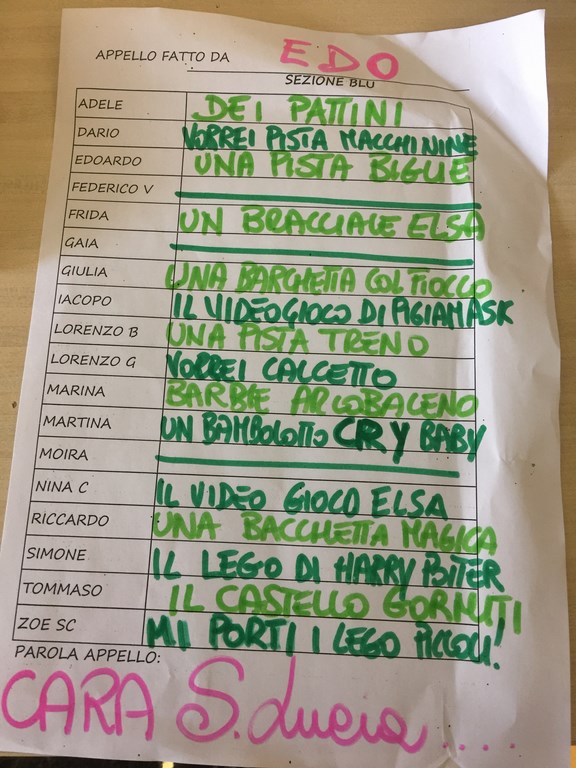 APPELLO FATTO DA EDO
SEZIONE BLU
ADELE DEI PATTINI
DARIO VORREI PISTA MACCHININE
EDOARDO UNA PISTA BIGLIE
FEDERICO V
FRIDA UN BRACCIALE ELSA
GAIA
GIULIA UNA BARCHETTA COL FIOCCO
IACOPO IL VIDEOGIOCO DI PIGIAMASK
LORENZO B UNA PISTA TRENO
LORENZO G VORREI CALCETTO
MARINA BARBIE ARCOBALENO
MARTINA UN BAMBOLOTTO CRY BABY
MOIRA
NINA C IL VIDEO GIOCO ELSA
RICCARDO UNA BACCHETTA MAGICA
SIMONE IL LEGO DI HARRY POTTER
TOMMASO IL CASTELLO GORMITI
ZOE SC MI PORTI I LEGO PICCOLI!
PAROLA APPELLO:
CARA S. Lucia....